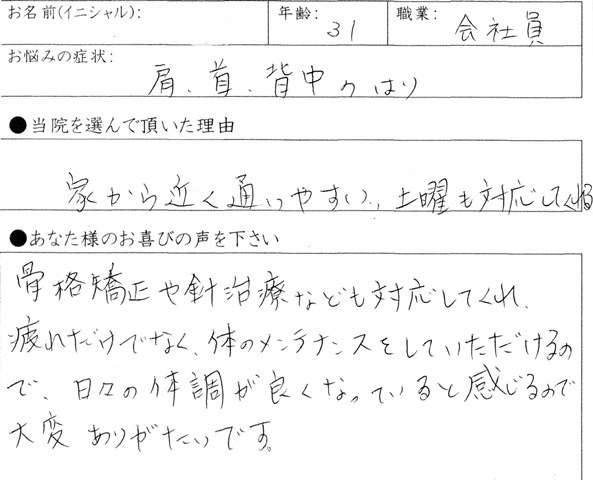 お名前(イニシャル):
年齢: 31
職業: 会社員
お悩みの症状:
肩、首、背中のはり
●当院を選んで頂いた理由
家から近く通いやすい、土曜も対応してくれる
●あなた様のお喜びの声を下さい
骨格矯正や針治療なども対応してくれ、
疲れだけでなく、体のメンテナンスをしていただけるの
で、日々の体調が良くなっていると感じるので
大変ありがたいです。